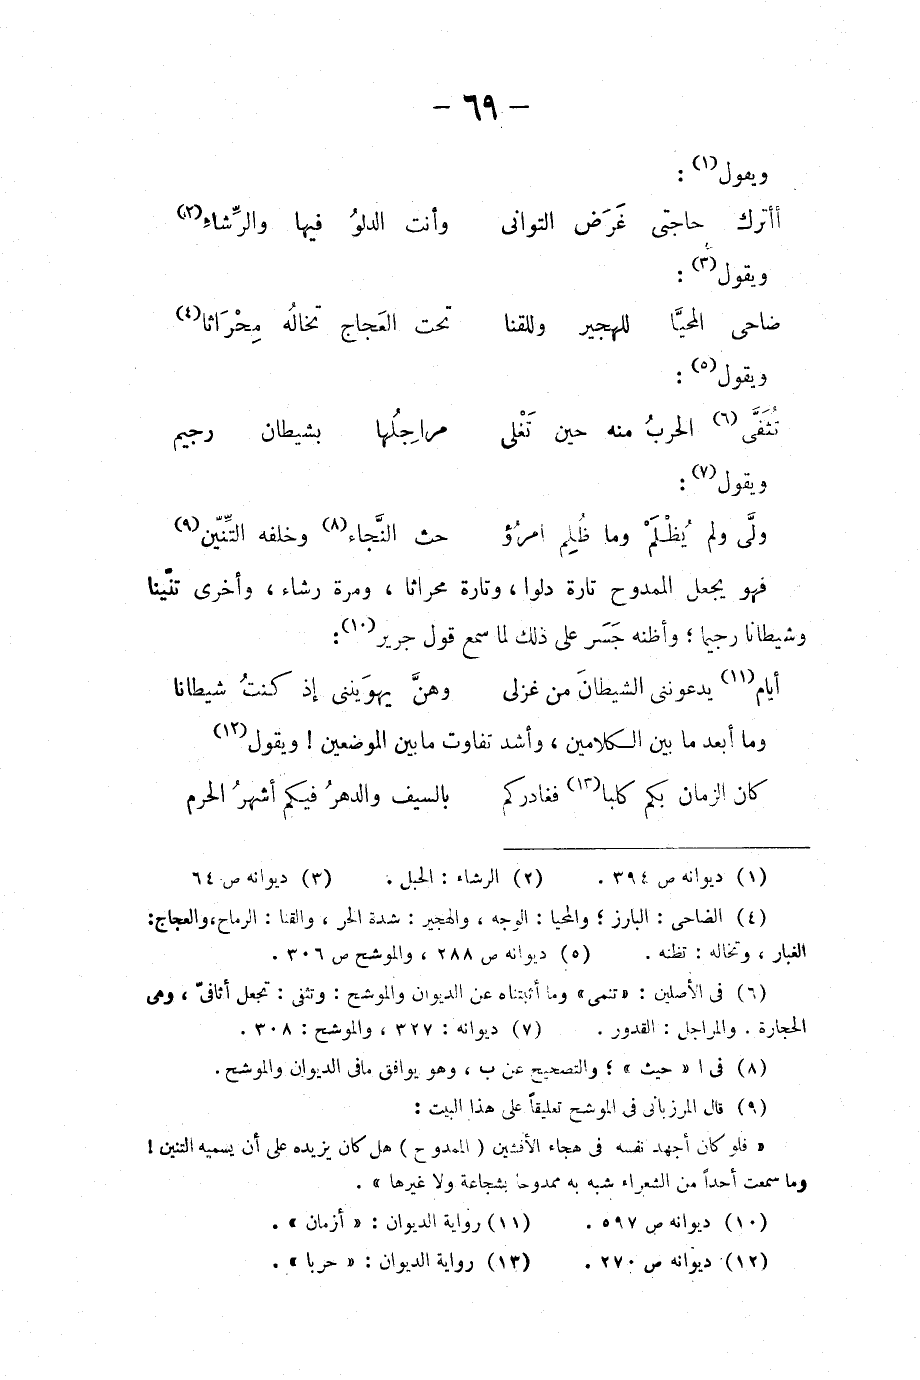 — ٦٩ —
ويقول(١) :
أأترك حاجتى غَرَضَ التوانى وأنت الدلوُ فيها والرِّشاءِ(٢)
ويقول(٣) :
ضاحى المحيَّا للهجير وللقنا تحت العَجاج تخالُه مِحْرَاثا(٤)
ويقول(٥) :
تُثَفَّى(٦) الحربُ منه حين تَغْلى مراجِلُها بشيطان رجيم
ويقول(٧) :
ولَّى ولم يُظْلَمْ وما ظُلِم امرُؤ حث النَّجاء(٨) وخلفه التِّنِّين(٩)
فهو يجعل الممدوح تارة دلوا ، وتارة محراثا ، ومرة رشاء ، وأخرى تنّينا
وشيطانا رجيما ؛ وأظنه جَسَر على ذلك لما سمع قول جرير(١٠) :
أيام(١١) يدعوننى الشيطانَ من غزلى وهنَّ يهوَيننى إذ كنتُ شيطانا
وما أبعد ما بين الكلامين ، وأشد تفاوت مابين الموضعين ! ويقول(١٢)
كان الزمان بكم كلبا(١٣) فغادركم بالسيف والدهرُ فيكم أشهرُ الحرم
(١) ديوانه ص ٣٩٤ . (٢) الرشاء : الحبل . (٣) ديوانه ص ٦٤
(٤) الضاحى : البارز ؛ والمحيا : الوجه ، والهجير : شدة الحر ، والقنا : الرماح،والعجاج:
الغبار ، وتخاله : تظنه . (٥) ديوانه ص ٢٨٨ ، والموشح ص ٣٠٦ .
(٦) فى الأصلين : «تنمى» وما أثبتناه عن الديوان والموشح : وتثفى : تجعل أثافىّ ، وهى
الحجارة . والمراجل : القدور . (٧) ديوانه : ٣٢٧ ، والموشح : ٣٠٨ .
(٨) فى ا « حيث » ؛ والتصحيح عن ب ، وهو يوافق مافى الديوان والموشح .
(٩) قال المرزبانى فى الموشح تعليقاً على هذا البيت :
« فلو كان أجهد نفسه فى هجاء الأفشين ( الممدوح ) هل كان يزيده على أن يسميه التنين !
وما سمعت أحداً من الشعراء شبه به ممدوحا بشجاعة ولا غيرها » .
(١٠) ديوانه ص ٥٩٧ . (١١) رواية الديوان : « أزمان » .
(١٢) ديوانه ص ٢٧٠ . (١٣) رواية الديوان : « حربا » .